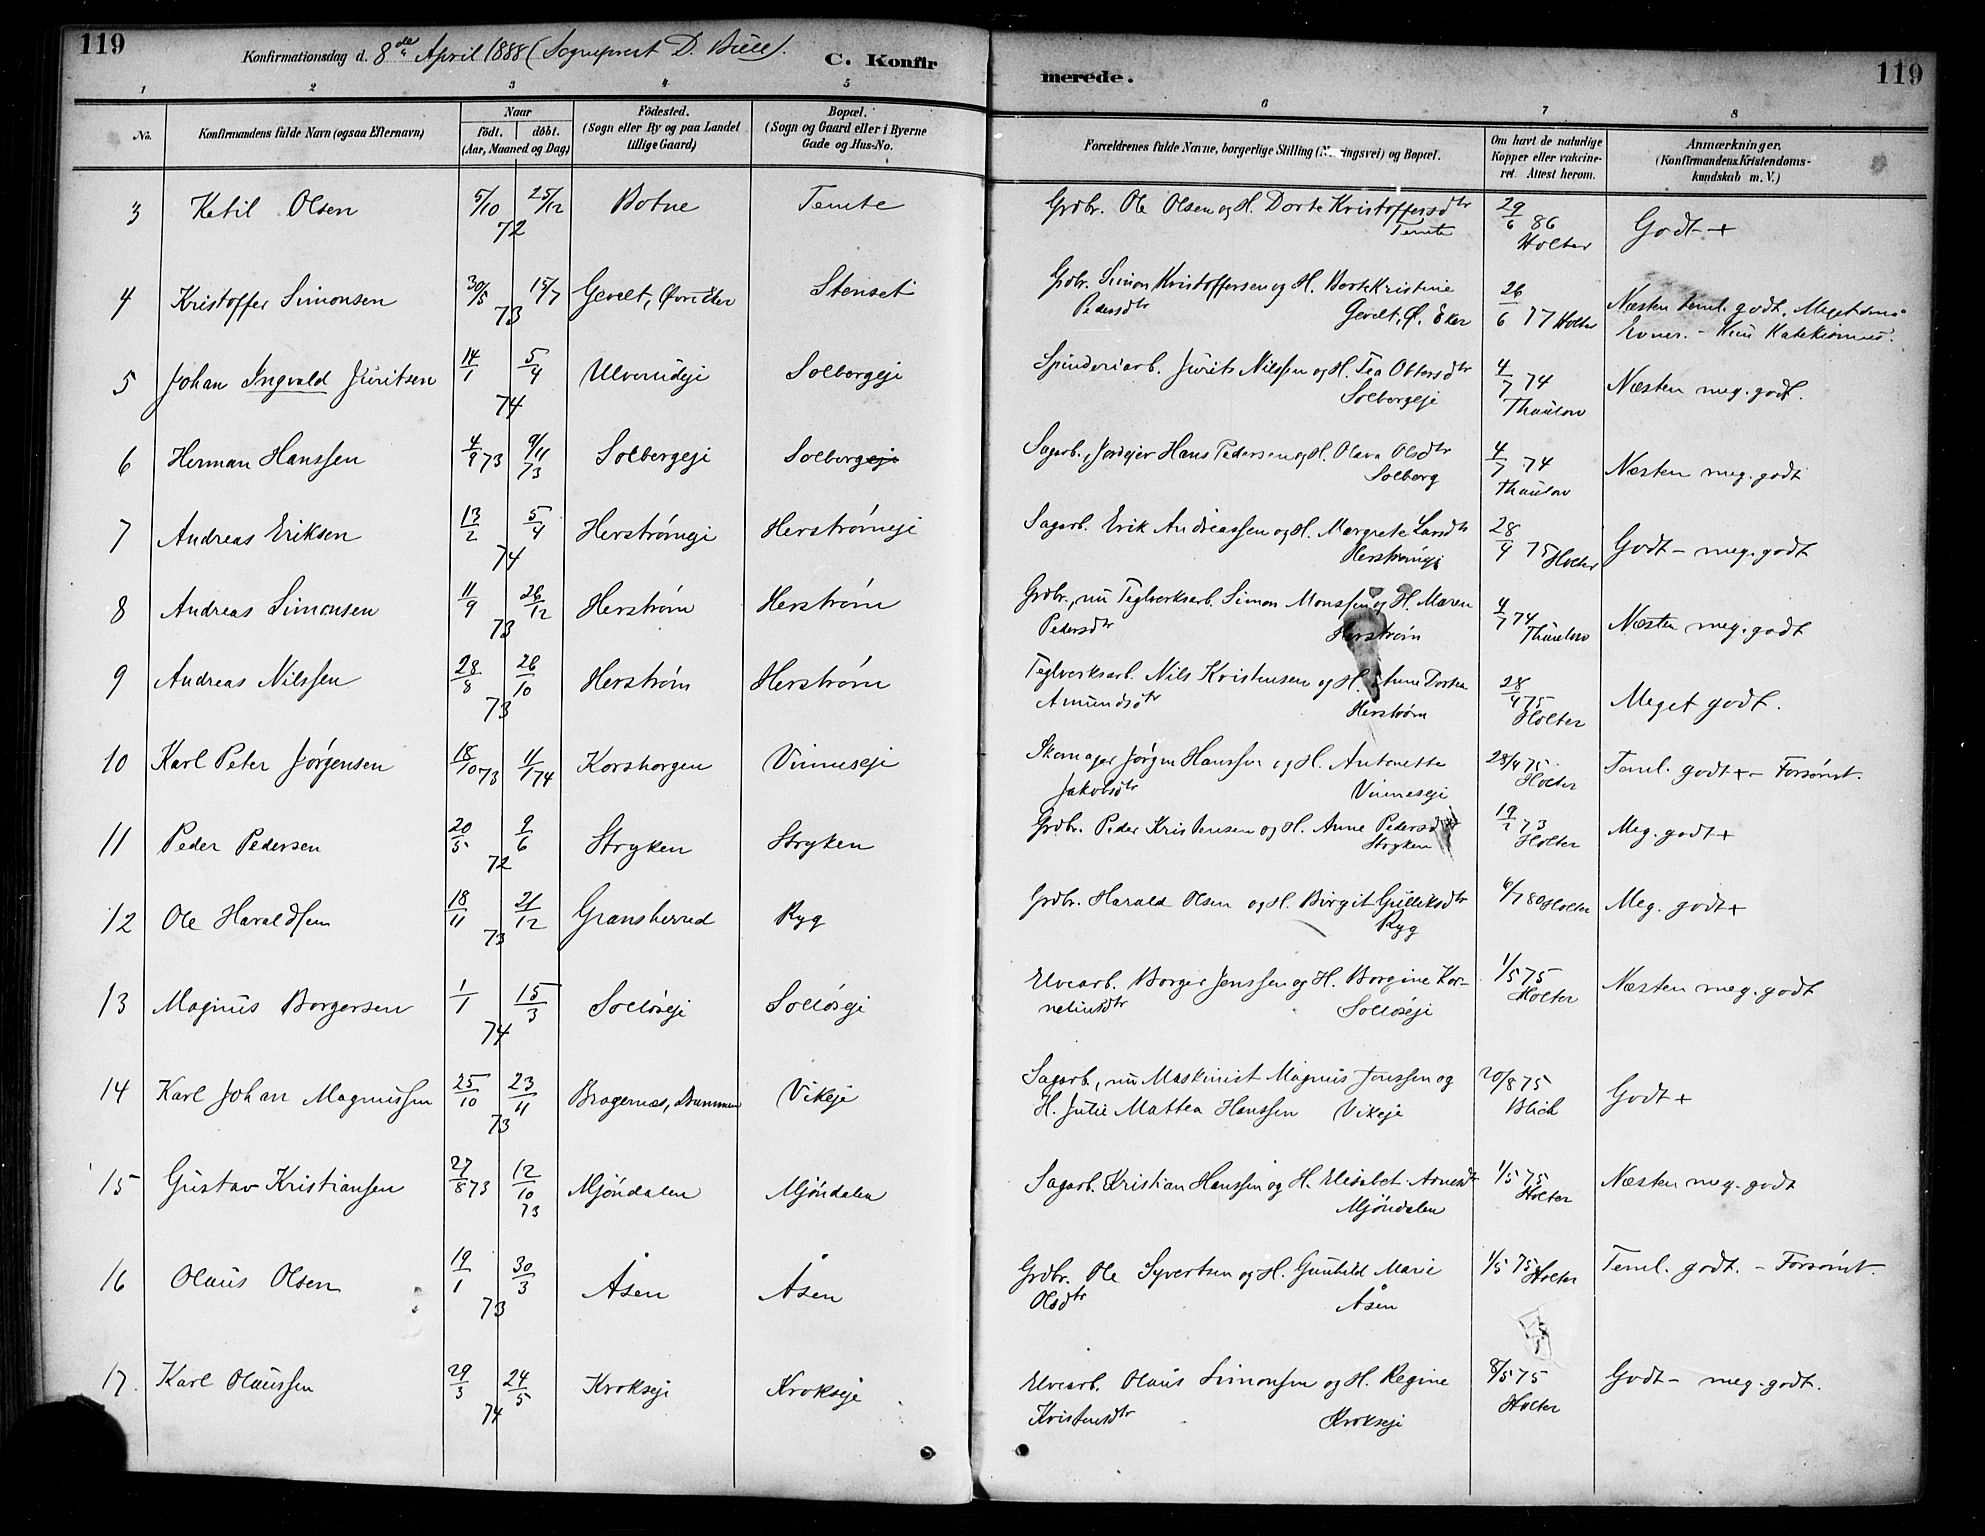 119
Konfirmationsdag d. 8de April 1888 (Sogneprest D. Bull).
C. Konfir
merede.
119
1 2 3 4 5 6 7 8
No.
Konfirmandens fulde Navn (ogsaa Efternavn)
Naar
født. døbt.
(Aar, Maaned og Dag)
Fødested.
(Sogn eller By og paa Landet
tillige Gaard)
Bopæl.
(Sogn og Gaard eller i Byerne
Gade og Hus-No.
Forældrenes fulde Navne, borgerlige Stilling (Næringsvei) og Bopæl.
Om havt de naturlige
Kopper eller vakcine-
ret. Attest herom.
Anmærkninger.
(Konfirmandens Kristendoms-
kundskab m. V.)
3 Ketil Olsen 5/10 25/12 Botne Temte Grdbr. Ole Olsen og H. Dorte Kristoffersdtr 29/6 86 Godt +
72 Temte Holter
4 Kristoffer Simonsen 30/5 15/7 Gevelt, Øvre Eker Stenset Grdbr. Simon Kristoffersen og H. Berte Kristine 26/6 77 Holter Næsten teml. godt. Meget små
73 Pedersdtr Gevelt, Ø. Eker Evner. - Kun Katekismus.
5 Johan Ingvald Juritsen 14/1 5/4 Ulverudeje Solbergeje Spinderiarb. Jurits Nilssen og H. Tea Ottersdtr 4/7 74 Næsten meg. godt.
74 Solbergeje Thaulow
6 Herman Hanssen 4/9 73 9/11 73 Solbergeje Solbergeje Sagarb., Jordejer Hans Pedersen og H. Olava Olsdtr 4/7 74 Næsten meg. godt
Solberg Thaulow
7 Andreas Eriksen 13/2 5/4 Herstrømeje Herstrømeje Sagarb. Erik Andreassen og H. Margrete Larsdtr 28/4 75 Holter Godt - meg. godt
74 Herstrømeje
8 Andreas Simonsen 11/9 26/12 Herstrøm Herstrøm Grdbr., nu Teglverksarb. Simon Monssen og H. Maren 4/7 74 Næsten meg. godt
73 Pedersdtr Herstrøm Thaulow
9 Andreas Nilssen 28/8 26/10 Herstrøm Herstrøm Teglverksarb. Nils Kristensen og H. Anne Dortea 28/4 75 Meget godt.
73 Amundsdtr Herstrøm Holter
10 Karl Peter Jørgensen 18/10 73 11/1 74 Korshorgen Vinneseje Skomager Jørgen Hanssen og H. Antonette 28/4 75 Teml. godt + - Forsømt.
Jakobsdtr Vinneseje Holter
11 Peder Pedersen 20/5 9/6 Stryken Stryken Grdbr. Peder Kristensen og H. Anne Pedersdtr 73 Meg. godt +
72 Stryken Holter
12 Ole Haraldsen 18/11 21/12 Gransherred Ryg Grdbr. Harald Olsen og H. Birgit Gulliksdtr 6/7 80 Holter Meg. godt +
73 Ryg
13 Magnus Borgersen 1/1 15/3 Solløseje Solløseje Elvearb. Borger Jenssen og H. Borgine Kor- 1/5 75 Næsten meg. godt
74 neliusdtr Solløseje Holter
14 Karl Johan Magnussen 25/10 23/11 Bragernes, Drammen Vikeje Sagarb., nu Maskinist Magnus Jenssen og 20/8 75 Godt +
73 H. Julie Mattea Hanssen Vikeje Blich
15 Gustav Kristianssen 27/8 73 12/10 73 Mjøndalen Mjøndalen Sagarb. Kristian Hanssen og H. Elisabet Arnesdtr 1/5 75 Næsten meg. godt
Mjøndalen Holter
16 Olaus Olsen 19/1 30/3 Åsen Åsen Grdbr. Ole Syvertsen og H. Gunhild Marie 1/5 75 Holter Teml. godt. - Forsømt.
73 Olsdtr Åsen
17. Karl Olaussen 29/3 24/5 Krokseje Krokseje Elvearb. Olaus Simonsen og H. Regine 8/5 75 Godt - meg. godt.
74 Kristensdtr Krokseje Holter